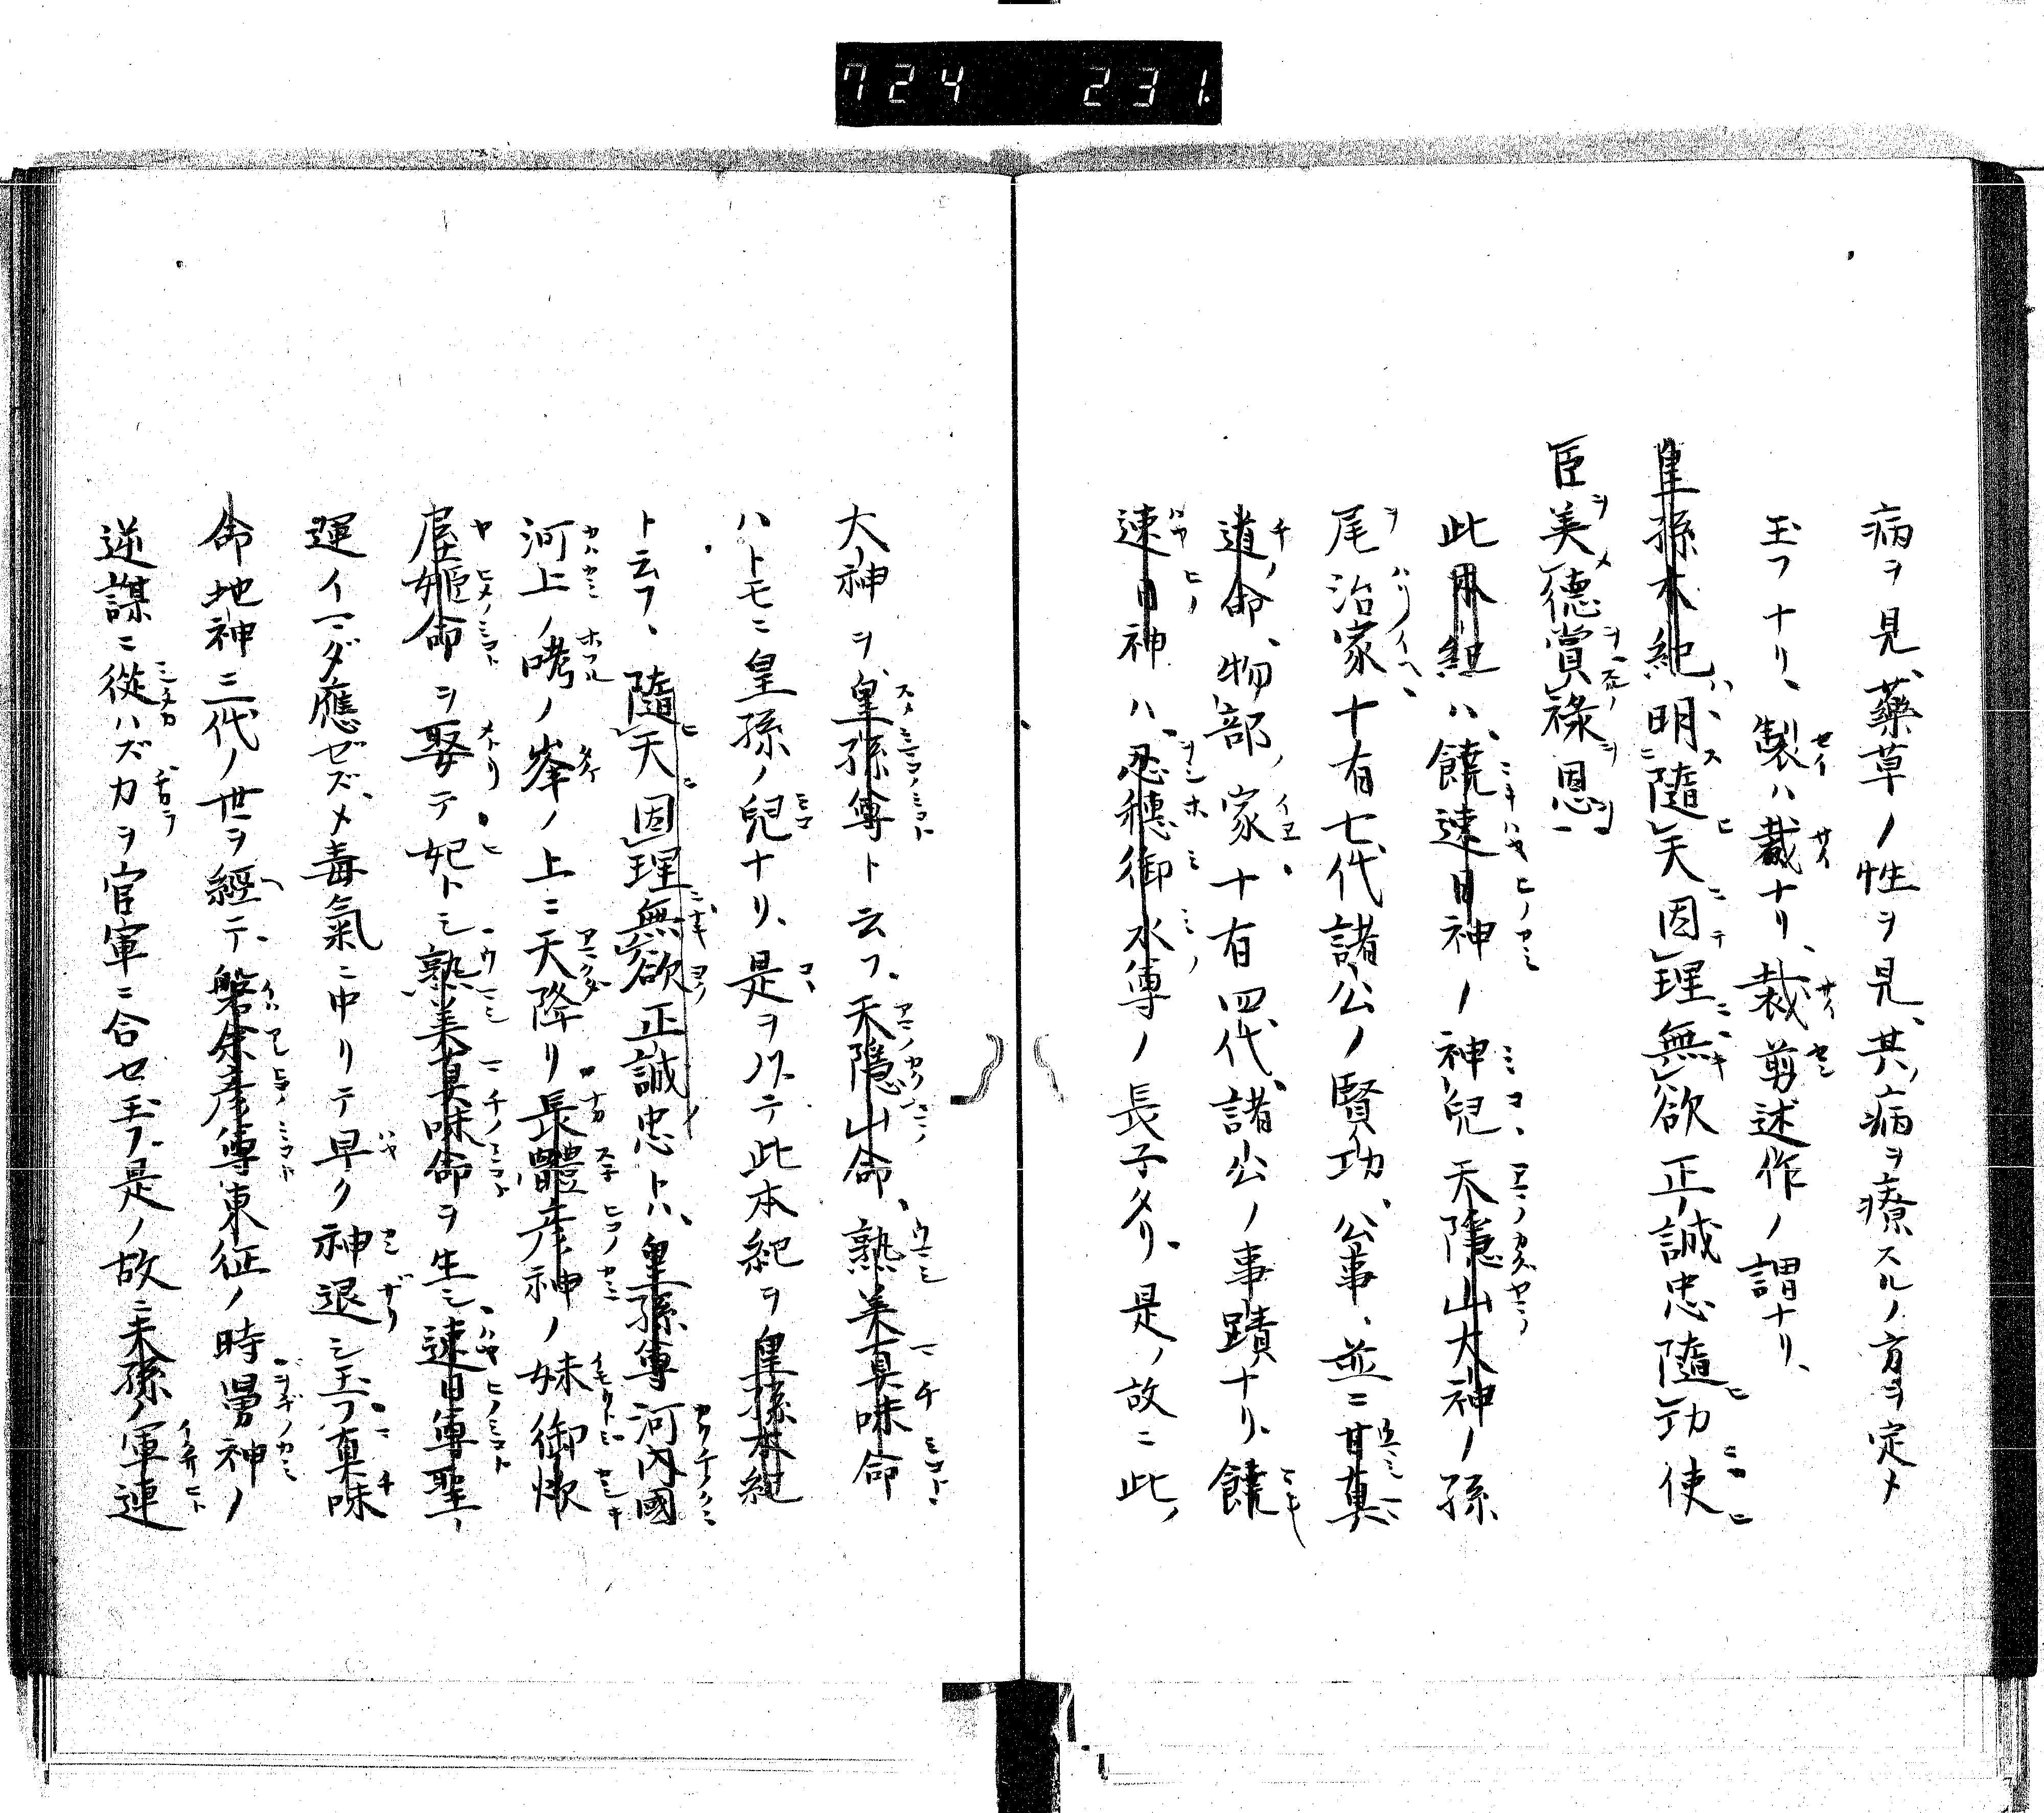 724 231.
病ヲ見、藥草ノ性ヲ見、其ノ病ヲ療スルノ方ヲ定メ
玉フナリ、製ハ裁ナリ、裁剪述作ノ謂ナリ、
皇孫本紀ハ、明隨天因理無欲正誠忠隨功使
臣美德賞祿恩一
此本紀ハ、饒速日神ノ神兒、天隱山大神ノ孫
尾治家、十有七代諸公ノ賢功、公事、並ニ甘真
道ノ命、物部ノ家、十有四代、諸公ノ事蹟ナリ、饒
速日神ハ、忍穗御水尊ノ長子タリ、是ノ故ニ此ノ
大神ヲ皇孫尊ト云フ、天隱山命、熟美真味命
ハトモニ皇孫ノ兒ナリ、是ヲ以テ此本紀ヲ皇孫本紀
ト云フ、隨天因理無欲正誠忠トハ、皇孫尊河內國
河上ノ哮ノ峯ノ上ニ天降リ長髓彦神ノ妹御炊
屋姬命ヲ娶テ妃トシ熟美真味命ヲ生シ、速日尊聖
運イマダ應ゼズ〆毒氣ニ中リテ早ク神退シ玉フ真味
命地神三代ノ世ヲ經テ、磐余彦尊東征ノ時舅神ノ
逆謀ニ從ハズカヲ官軍ニ合セ玉フ是ノ故ニ天孫ノ軍連